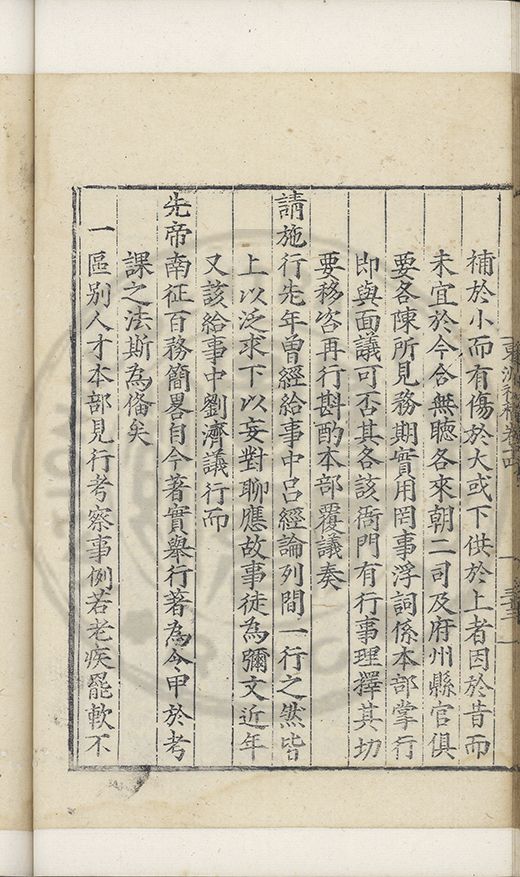 補於小而有傷於大或下供於上者因於昔而
未宜於今合無聽各來朝二司及府州縣官俱
要各陳所見務期實用罔事浮詞係本部掌行
即與面議可否其各該衙門有行事理擇其切
要移咨再行斟酌本部覆議奏
請施行先年曾經給事中呂經論列間一行之然皆
上以泛求下以妄對聊應故事徒為彌文近年
又該給事中劉濟議行而
先帝南征百務簡畧自今著實舉行著為令甲於考
課之法斯為備矣
一區別人才本部見行考察事例若老疾罷軟不